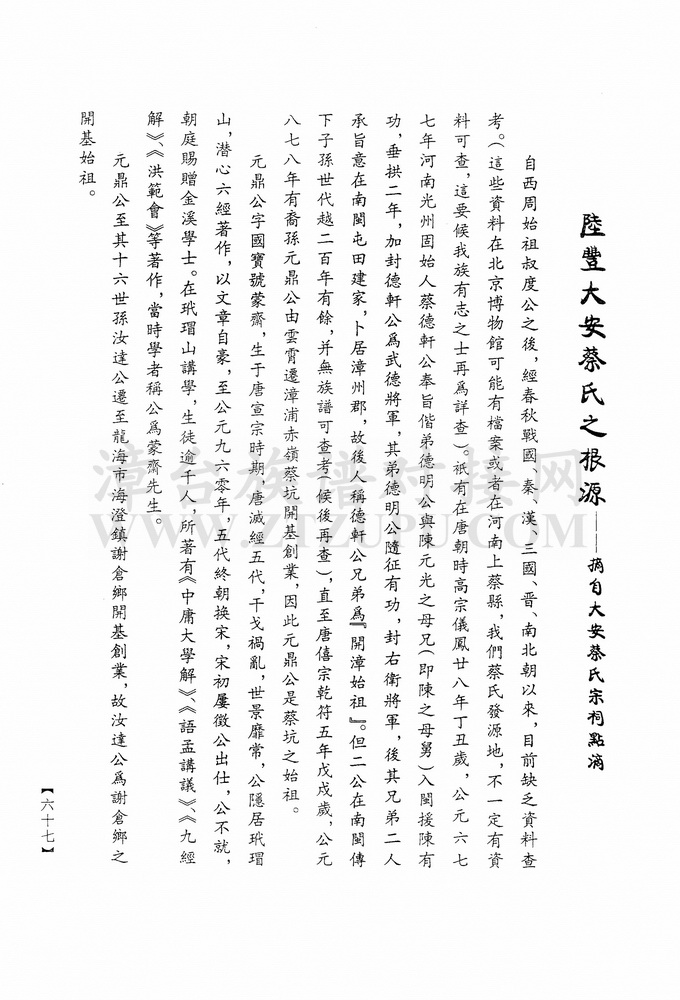 陸豐大安蔡氏之根源——摘自大安蔡氏宗祠點滴
自西周始祖叔度公之後，經春秋戰國、秦、漢、三國、晋、南北朝以來，目前缺乏資料查
考。（這些資料在北京博物館可能有檔案或者在河南上蔡縣，我們蔡氏發源地，不一定有資
料可查，這要候我族有志之士再爲詳查）。祇有在唐朝時高宗儀鳳廿八年丁丑歲，公元六七
七年河南光州固始人蔡德軒公奉旨偕弟德明公與陳元光之母兄（即陳之母舅）入閩援陳有
功，垂拱二年，加封德軒公爲武德將軍，其弟德明公隨征有功，封右衛將軍，後其兄弟二人
承旨意在南閩屯田建家，卜居漳州郡，故後人稱德軒公兄弟爲『開漳始祖』。但二公在南閩傳
下子孫世代越二百年有餘，并無族譜可查考，候後再查），直至唐僖宗乾符五年戊戌歲，公元
八七八年有裔孫元鼎公由雲霄遷漳浦赤嶺蔡坑開基創業，因此元鼎公是蔡坑之始祖。
元鼎公字國寶號蒙齋，生于唐宣宗時期，唐滅經五代，干戈禍亂，世景靡常，公隱居玳瑁
山，潜心六經著作，以文章自豪，至公元九六零年，五代終朝换宋，宋初屢徵公出仕，公不就，
朝庭賜贈金溪學士。在玳瑁山講學，生徒逾千人，所著有《中庸大學解》、《語孟講議》、《九經
解》、《洪範會》等著作，當時學者稱公爲蒙齋先生。
元鼎公至其十六世孫汝達公遷至龍海市海澄鎮謝倉鄉開基創業，故汝達公爲謝倉鄉之
開基始祖。
【六十七】
漳台族谱对接网
WWW.ZTZUPU.COM